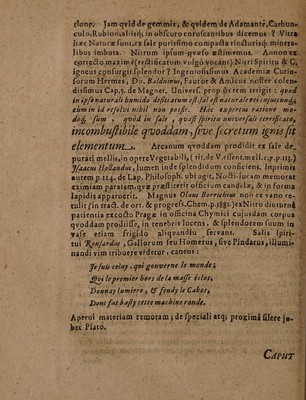 clone. Jam quid de gemmis, & quidem de Adamante, Carbun-
culo, Rubino, aliisq; in obscuro coruscantibus dicemus? Vitra
hæc Naturæ sunt, ex sale purissimo compacta tincturisq; minera-
libus imbuta. Nitrum ipsum quæso æstimemus. Annon ex
correcto maximè (rectificatum vulgo vorant) Nitri Spiritu & C.
igneus consurgit splendor? Ingeniosissimus Academiæ Curio-
sorum Hermes, Dn. Balduinus, Fautor & Amicus noster colen-
dissimus Cap. 5. de Magnet. Univers. prop. 5. rem tetigit: quod
in ipso naturali humido desiccatum est, sal est naturale rei injuncium,
cum in id resolvi nihil non possit. Hac expertus ratione mo-
doq, sum, quod in sale, quasi spiritu universali terrificato,
incombustibile quoddam, sive secretum ignis sit
elementum. Arcanum quoddam prodidit ex sale de-
purati mellis, in opere Vegetabili, (tit. de Vr. ist. mell. c. 9. p. 213.)
Isaacus Hollandus, lumen inde splendidum conficiens. Inprimis
autem p. 114. de Lap. Philosoph. ubi agit, Noctilucam memorat
eximiam paratam, quæ præsttterit officium candelæ, & in forma
lapidis apparuerit. Magnus Olaus Borrichius non ex vano re-
tulit (in tract. de ort. & progress. Chem. p. 188.) ex Nitro diuturnâ
patientia excocto Pragæ in officina Chymici cujusdam corpus
quoddam prodiisse, in tenebris lucens, & splendorem suum in
vase etiam frigido aliquandiu servans. Salis spiri-
tui Ronsardus, Gallorum seu Homerus, sive Pindarus, illumi-
nandi vim tribuere videtur, canens:
Je suis celuy, qui gouverne le monde;
Qui le premier hors de la masse éclos,
Donnay lumiere, & fendy le Cahos,
Dont fut basty ceste machine ronde.
Aperui materiam remotam; de speciali atq; proxima silere ju-
bet Plato.
CAPUT